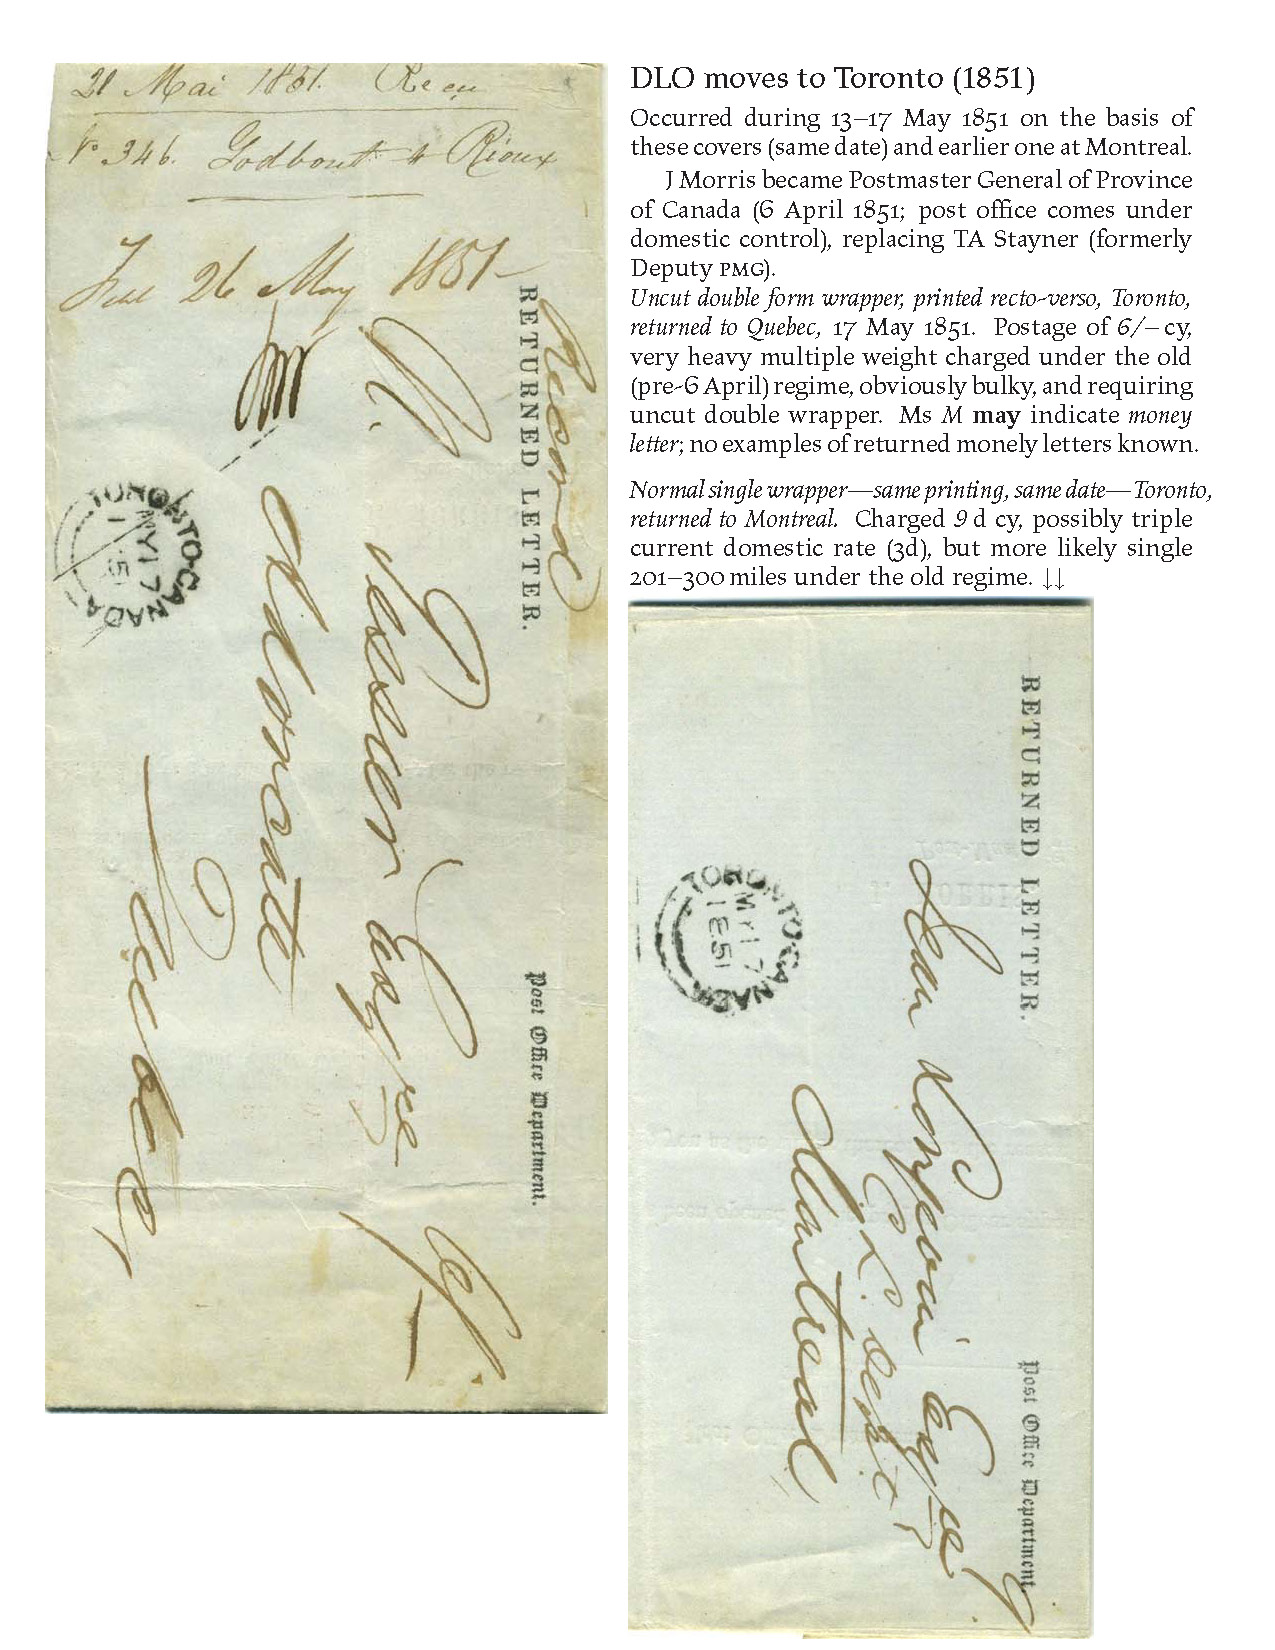 DLO moves to Toronto (1851)
Occurred during 13–17 May 1851 on the basis of
these covers (same date) and earlier one at Montreal.
J Morris became Postmaster General of Province
of Canada (6 April 1851; post office comes under
domestic control), replacing TA Stayner (formerly
Deputy PMG).
Uncut double form wrapper, printed recto-verso, Toronto,
returned to Quebec, 17 May 1851. Postage of 6/– cy,
very heavy multiple weight charged under the old
(pre-6 April) regime, obviously bulky, and requiring
uncut double wrapper. Ms M may indicate money
letter; no examples of returned monely letters known.
Normal single wrapper—same printing, same date—Toronto,
returned to Montreal. Charged 9 d cy, possibly triple
current domestic rate (3d), but more likely single
201–300 miles under the old regime. ↓↓
21 Mai 1851. Recu
No 346. Godbout & Rioux
26 May 1851
RETURNED LETTER.
Post Office Department.
Tessier Esqre
Advocate
Quebec
6/-
TORONTO·CANADA
MY 17
1851
RETURNED LETTER.
Post Office Department
Esqre
Montreal
9
TORONTO·CANADA
MY 17
1851